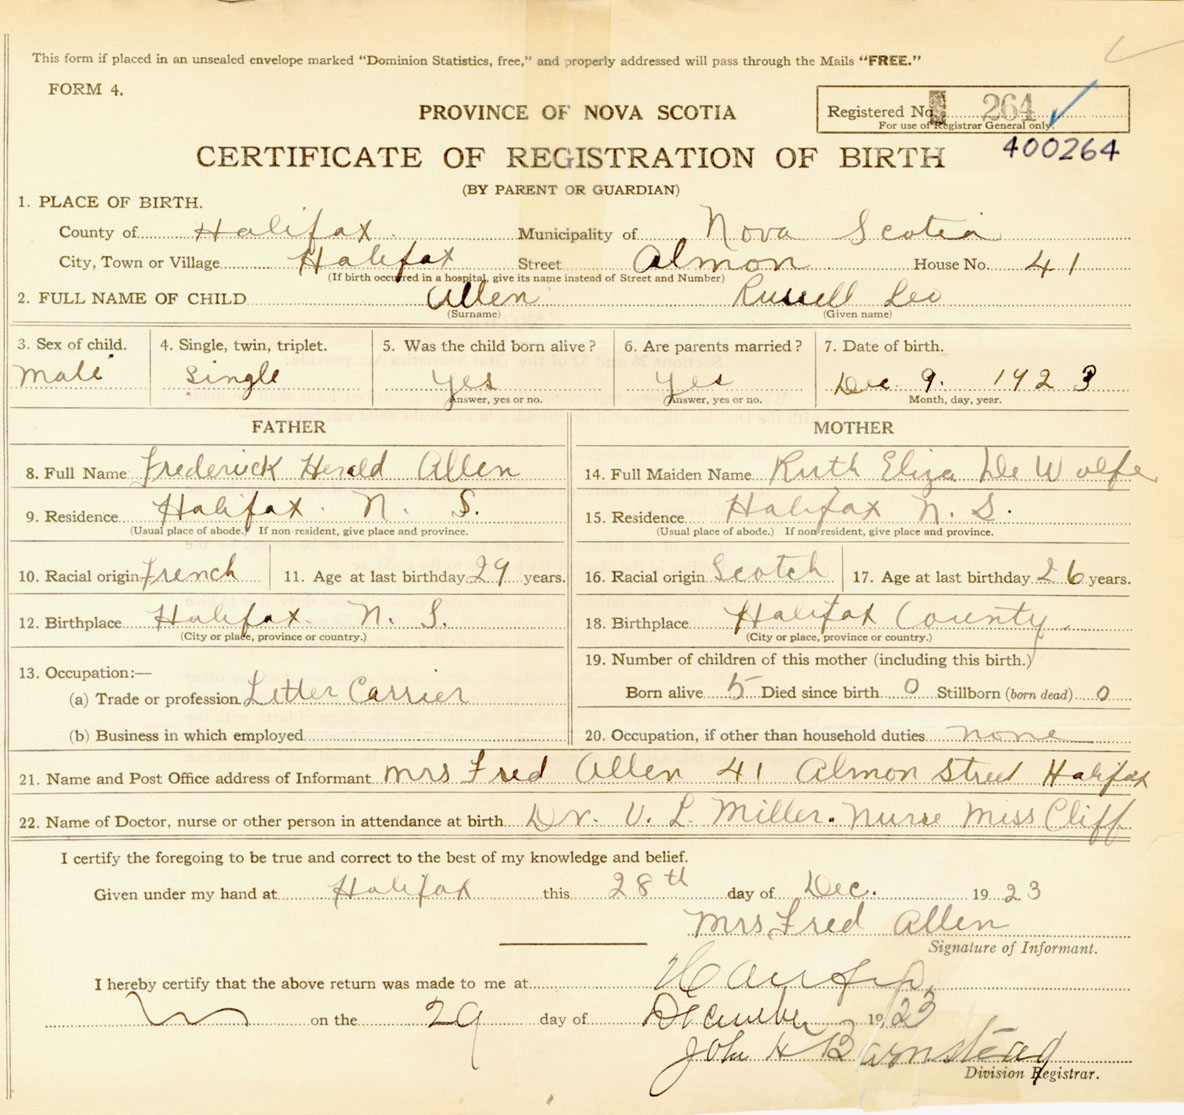 This form if placed in an unsealed envelope marked "Dominion Statistics, free," and properly addressed will pass through the Mails "FREE."
FORM 4.
PROVINCE OF NOVA SCOTIA
Registered No. 264
For use of Registrar General only.
CERTIFICATE OF REGISTRATION OF BIRTH
400264
(BY PARENT OR GUARDIAN)
1. PLACE OF BIRTH.
County of Halifax. Municipality of Nova Scotia
City, Town or Village Halifax Street Almon House No. 41
(If birth occurred in a hospital, give its name instead of Street and Number)
2. FULL NAME OF CHILD Allen Russell Leo
(Surname) (Given name)
3. Sex of child. 4. Single, twin, triplet. 5. Was the child born alive? 6. Are parents married? 7. Date of birth.
male single yes yes Dec. 9. 1923
Answer, yes or no. Answer, yes or no. Month, day, year.
FATHER MOTHER
8. Full Name Frederick Herald Allen 14. Full Maiden Name Ruth Eliza De Wolfe
9. Residence Halifax. N. S. 15. Residence Halifax N. S.
(Usual place of abode.) If non resident, give place and province. (Usual place of abode.) If non-resident, give place and province.
10. Racial origin French 11. Age at last birthday 29 years. 16. Racial origin Scotch 17. Age at last birthday 26 years.
12. Birthplace Halifax. N. S. 18. Birthplace Halifax County.
(City or place, province or country.) (City or place, province or country.)
13. Occupation:— 19. Number of children of this mother (including this birth.)
(a) Trade or profession Letter Carrier Born alive 5 Died since birth 0 Stillborn (born dead) 0
(b) Business in which employed 20. Occupation, if other than household duties none
21. Name and Post Office address of Informant Mrs Fred Allen 41 Almon Street Halifax
22. Name of Doctor, nurse or other person in attendance at birth Dr. V. L. Miller. Nurse Miss Cliff
I certify the foregoing to be true and correct to the best of my knowledge and belief.
Given under my hand at Halifax this 28th day of Dec. 1923
Mrs Fred Allen
Signature of Informant.
I hereby certify that the above return was made to me at Halifax
on the 29 day of December 1923
John H Barnstead
Division Registrar.